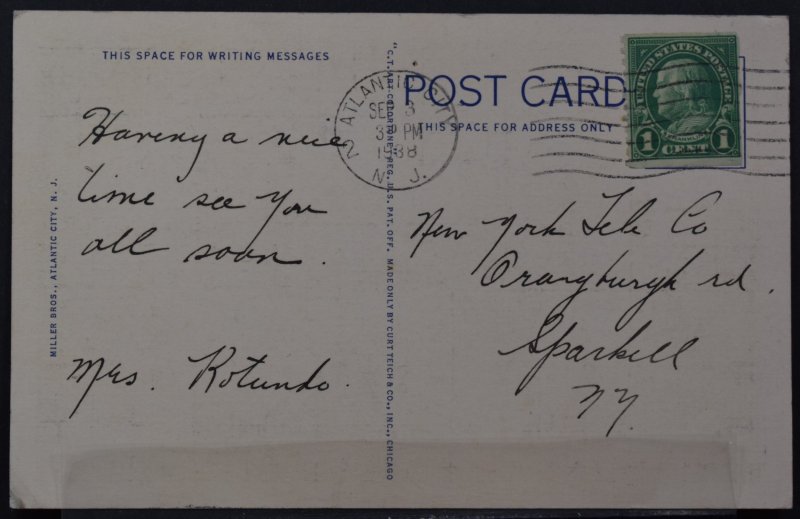 THIS SPACE FOR WRITING MESSAGES
Having a nice
time see you
all soon.
Mrs. Rotundo.
MILLER BROS., ATLANTIC CITY, N. J.
"C.T. ART-COLORTONE" REG. U.S. PAT. OFF. MADE ONLY BY CURT TEICH & CO., INC., CHICAGO
ATLANTIC CITY
2
SEP 3
PM
1938
N. J.
POST CARD
THIS SPACE FOR ADDRESS ONLY
UNITED STATES POSTAGE
1 1
CENT
New York Tele Co
Orangburgh rd.
Sparkill
NY.